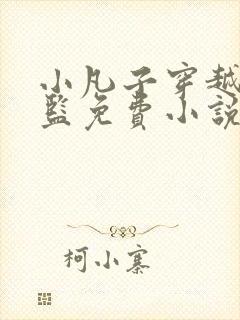 小凡子穿越
籃免費小說
柯小寨